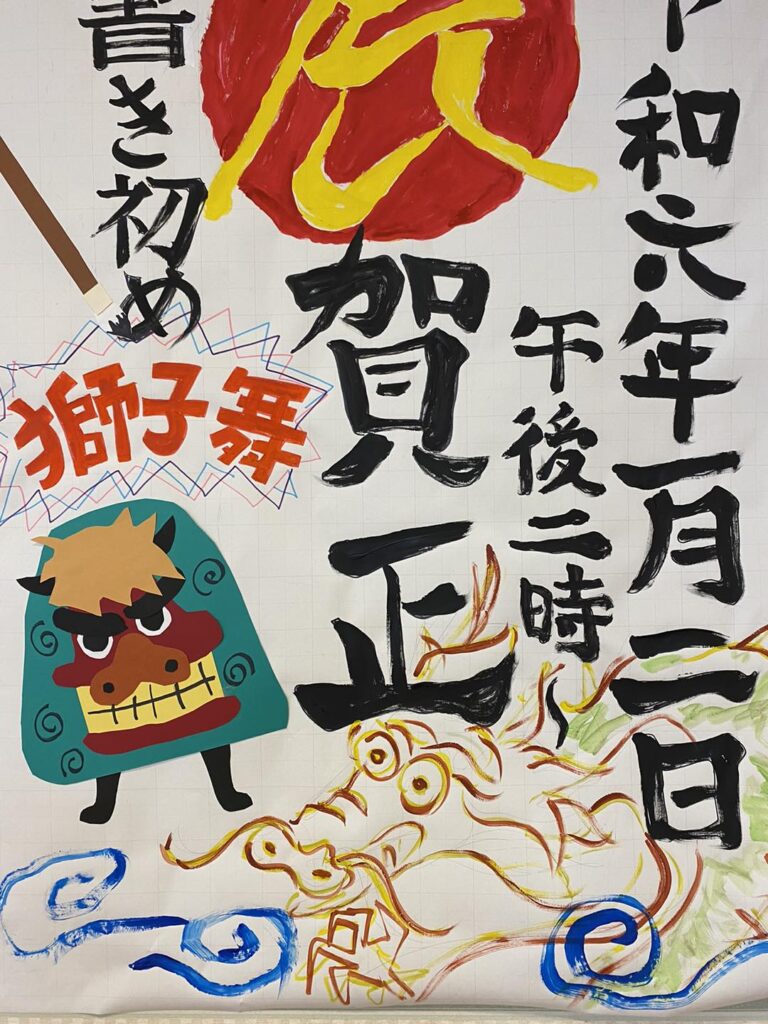 令和六年一月二日
午後二時〜
辰
賀正
書き初め
獅子舞